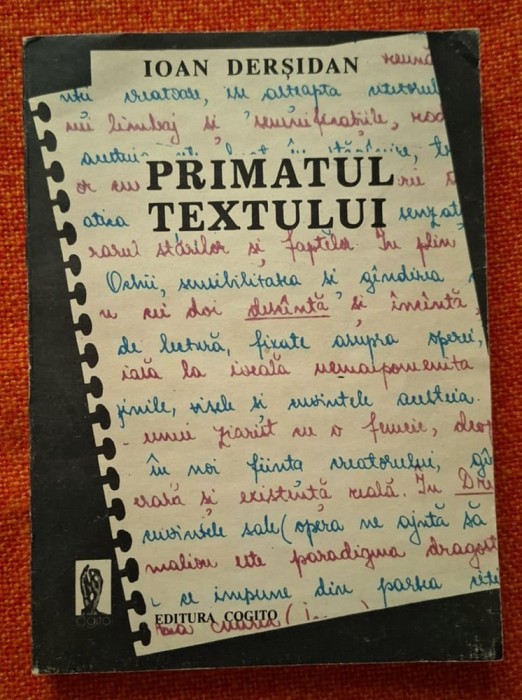 IOAN DERȘIDAN
PRIMATUL
TEXTULUI
creatoare, se așteaptă viitorul
limbaj și semnificațiile,
or
atica senzați
rarul stărilor și faptelor. În plin
Ochii, sensibilitatea și gîndirea
u cei doi descîntă și încîntă
de lectură, fixate asupra operei,
iată la iveală nemaipomenita
jinile, visele și cuvintele acesteia.
unui ziarist cu o femeie,
în noi ființa creatorului, gî
erată și existență reală. În Dre
cuvintele sale (opera ne ajută să
este paradigma dragost
ce impune din partea
EDITURA COGITO
cogito